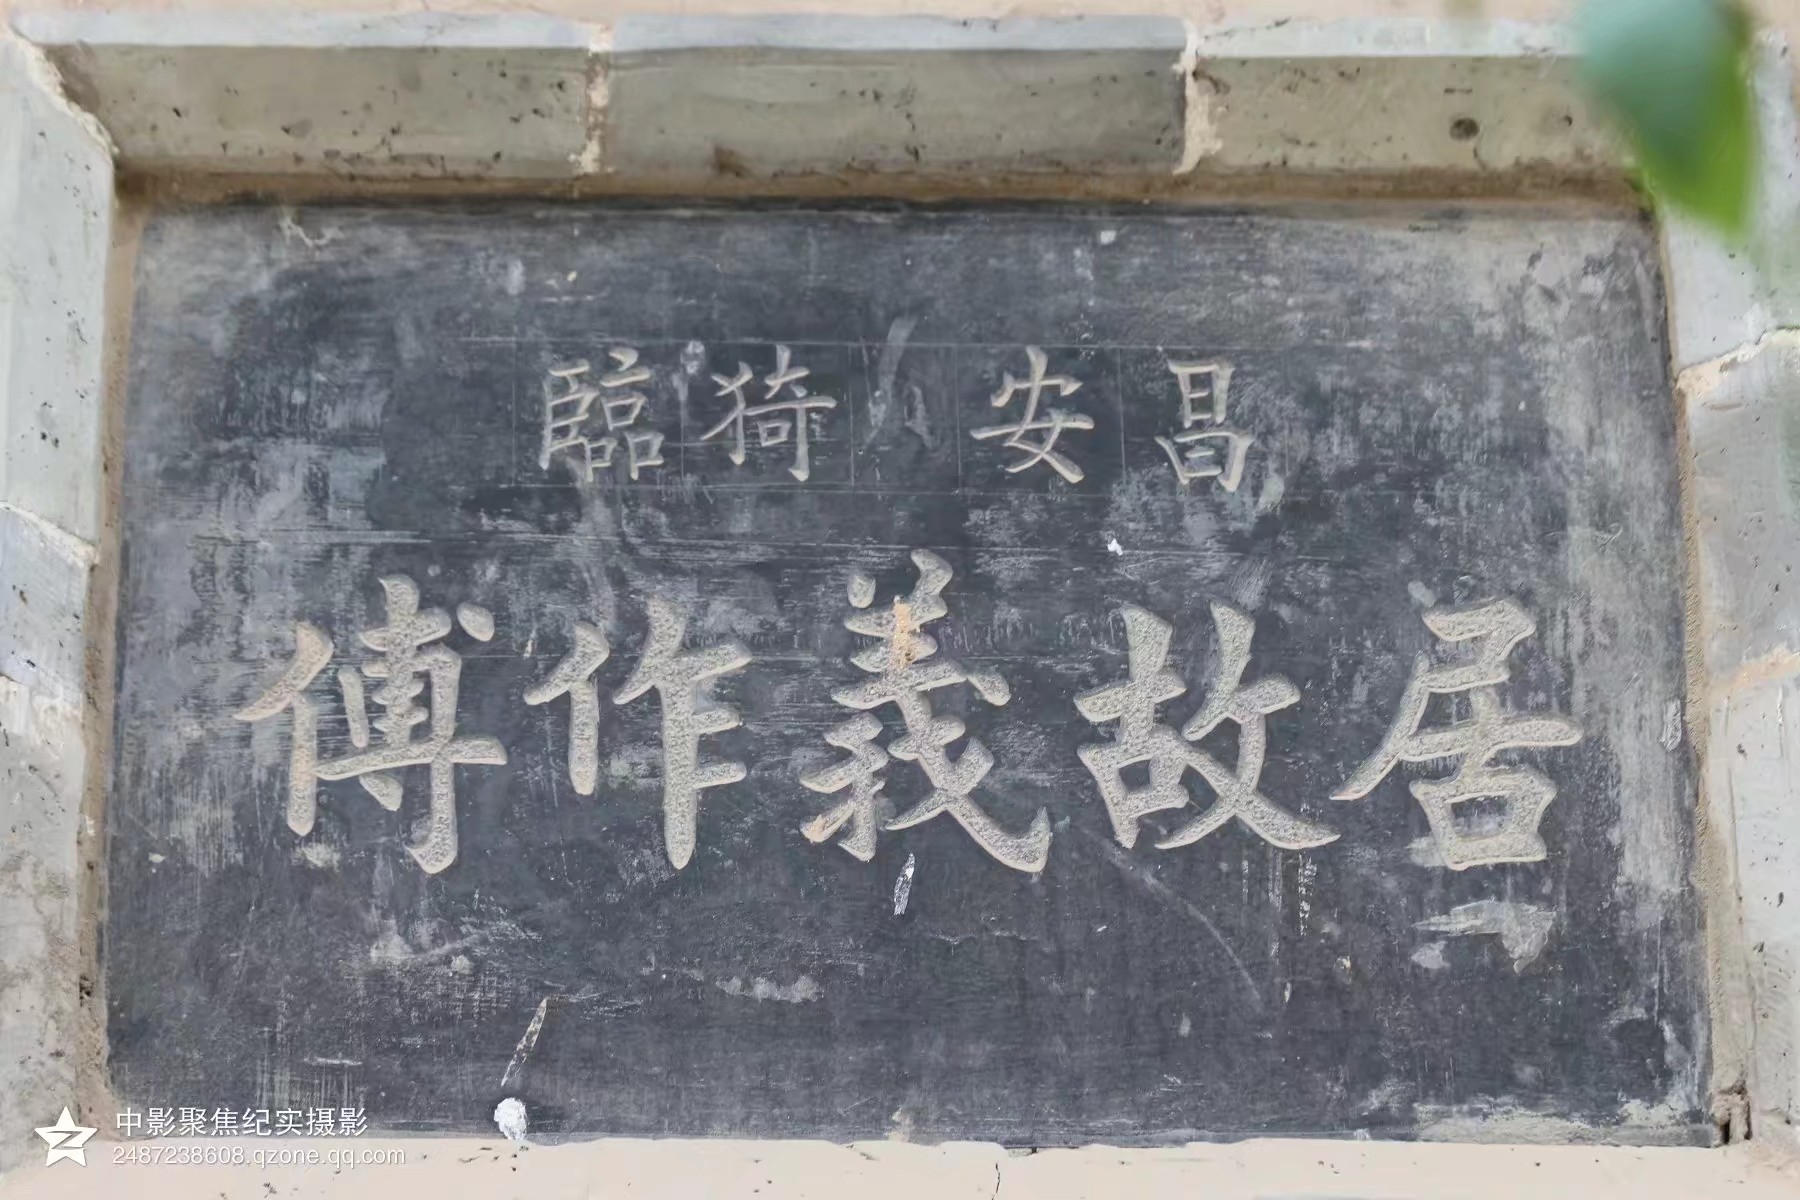 臨猗 安昌
傅作義故居
中影聚焦纪实摄影
2487238608.qzone.qq.com